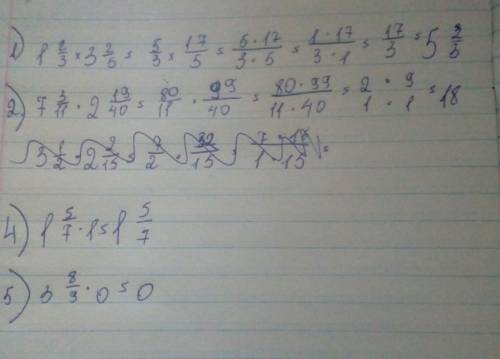 1) 1 2/3 × 3 2/5 = 5/3 × 17/5 = 5·17/3·5 = 1·17/3·1 = 17/3 = 5 2/5
2) 7 3/11 · 2 19/40 = 80/11 · 99/40 = 80·99/11·40 = 2·9/1·1 = 18
3 1/2 · 2 2/15 = 7/2 · 32/15 =
4) 1 5/7 · 1 = 1 5/7
5) 3 8/9 · 0 = 0